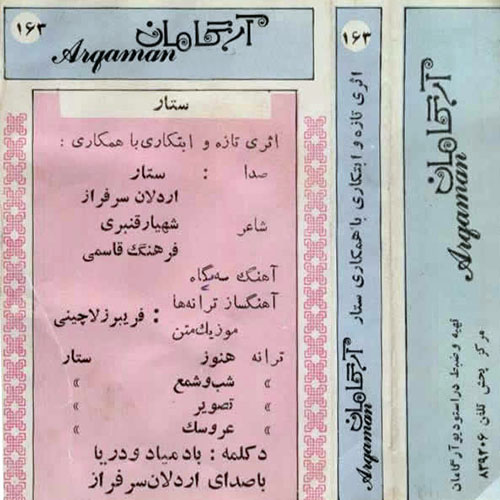 ۱۶۳
آرنگامان
Arqaman
ستار
اثری تازه و ابتکاری با همکاری :
صدا : ستار
اردلان سرفراز
شاعر شهیار قنبری
فرهنگ قاسمی
آهنگ سه‌گاه
آهنگساز ترانه‌ها
موزیک متن : فریبرز لاچینی
ترانه هنوز ستار
» شب و شمع »
» تصویر »
» عروسک »
دکلمه : باد میاد و دریا
با صدای اردلان سرفراز
۱۶۳
اثری تازه و ابتکاری با همکاری ستار
آرنگامان
Arqaman
آرنگامان
Arqaman
تهیه و ضبط در استودیو آرگامان
مرکز پخش تلفن ۸۳۹۲۰۶